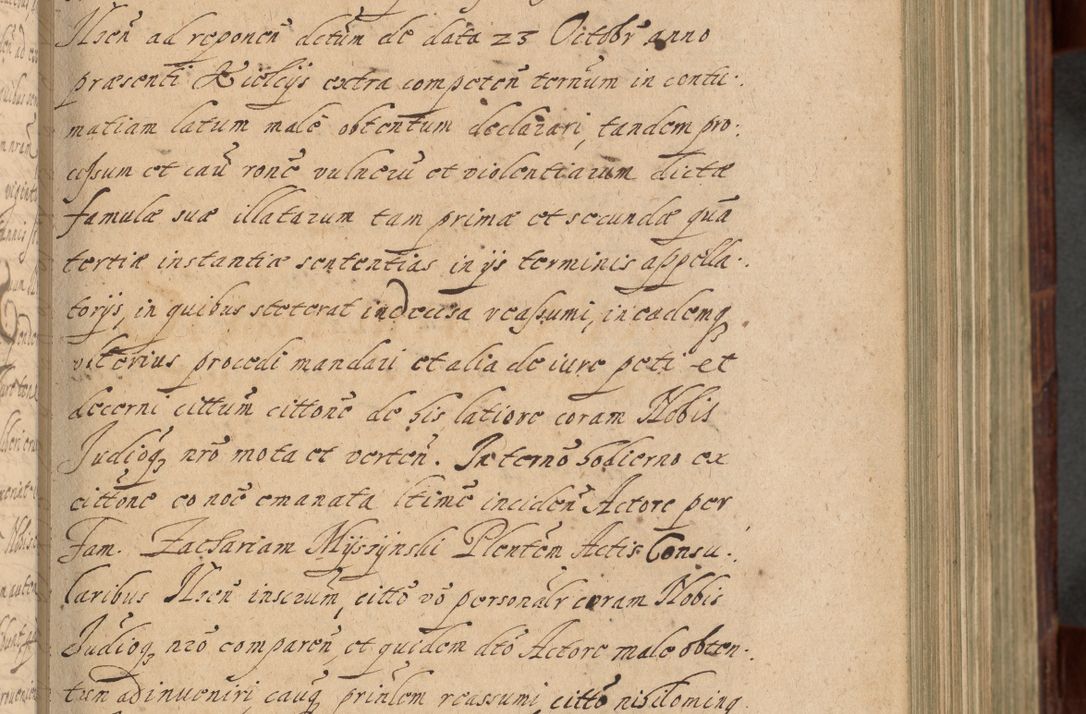 Nsen̄ ad reponen̄ detūm de data 23 Octobr̄ anno
præsenti Kielcijs extra competen̄ ternūm in contu-
matiam latum malē obtentum declarari, tandem pro-
cessum et cau̅ ronē vulneru̅ et violentiarum dictæ
famulæ suæ illatarum tam primæ et secundæ qua̅
tertiæ instantiæ sententias in ijs terminis appella-
torijs, in quibus steterat indecisa reassumi, in eademq
vlterius procedi mandari et alia de iure peti et
decerni cittūm cittonē de his latiore coram Nobis
Iudioq nr̄o mota et verten̄. In termō hodierno ex
cittōne eo noē emanata ltimē inciden̄ Actore per
Fam. Zachariam Mijszÿnski Plentēm Actis Consu-
laribus Nsen̄ inserūm, cittō vō personalr coram Nobis
Iūdioq nr̄o comparen̄, et quidem dtō Actore male obten-
tum adinueniri, cau̅q prin̄lem reassumi, cittō nihilominq